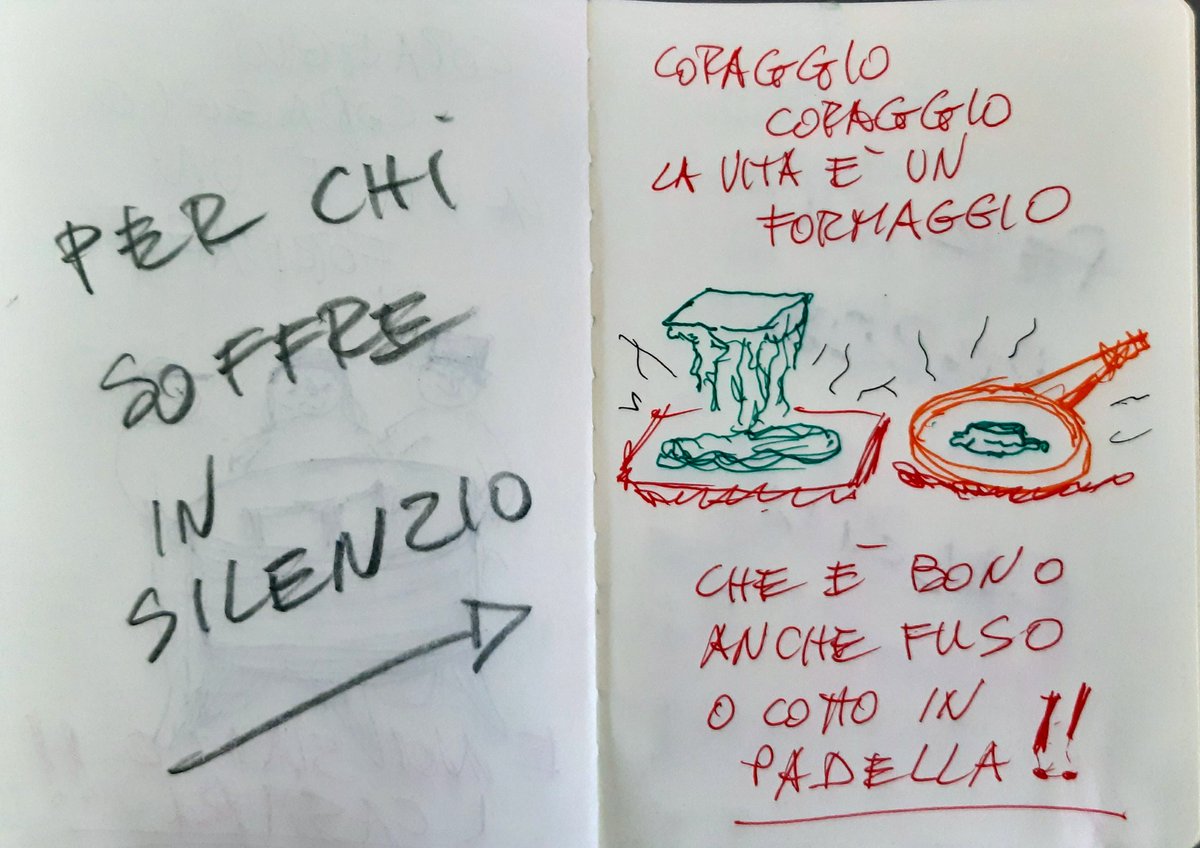 PER CHI
SOFFRE
IN
SILENZIO
CORAGGIO
CORAGGIO
LA VITA È UN
FORMAGGIO
CHE È BONO
ANCHE FUSO
O COTTO IN
PADELLA!!